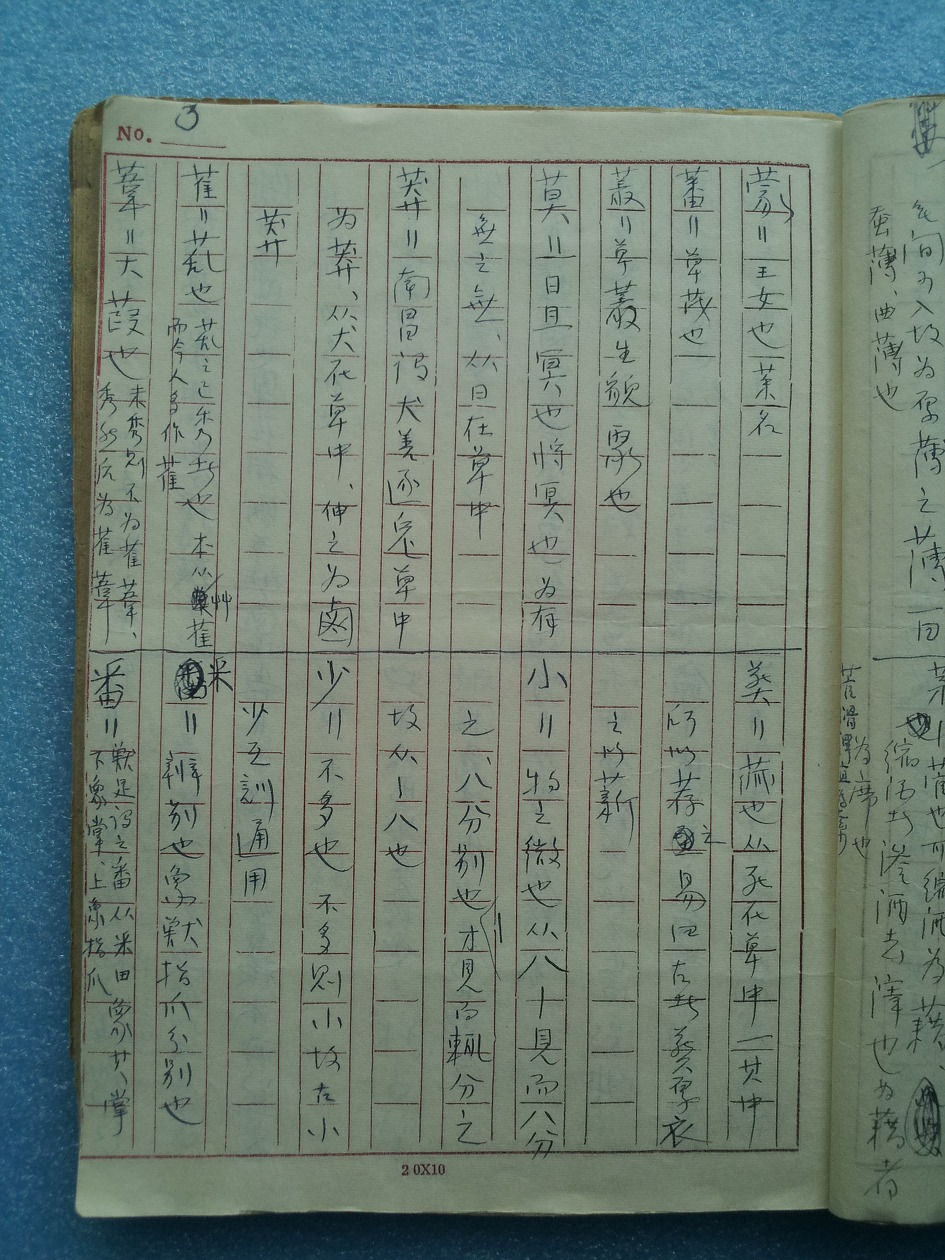 No. 3
蒙〃王女也 菜名
蕃〃草茂也
叢〃草叢生貌 聚也
莫〃日且冥也將冥也為有
無之無、从日在草中
莽〃南昌謂犬善逐兔草中
為莽、从犬在草中、伸之為鹵
莽
萑〃薍也 薍之已秀者也 本从艸萑
而今人多作萑
葦〃大葭也 未秀則不為萑葦、
秀然后為萑葦
葬〃藏也从死在草中一其中
所以荐之易曰古者葬厚衣
之以薪
小〃物之微也从八丨見而八分
之、八分別也 才見而輒分之
故从丨八也
少〃不多也 不多則小故古小
少互訓通用
釆〃辨別也象獸指爪分別也
番〃獸足謂之番从釆田象其掌
下象掌、上象指爪
民間
為厚薄之薄、一曰
蚕薄、曲薄也
為席也
20X10